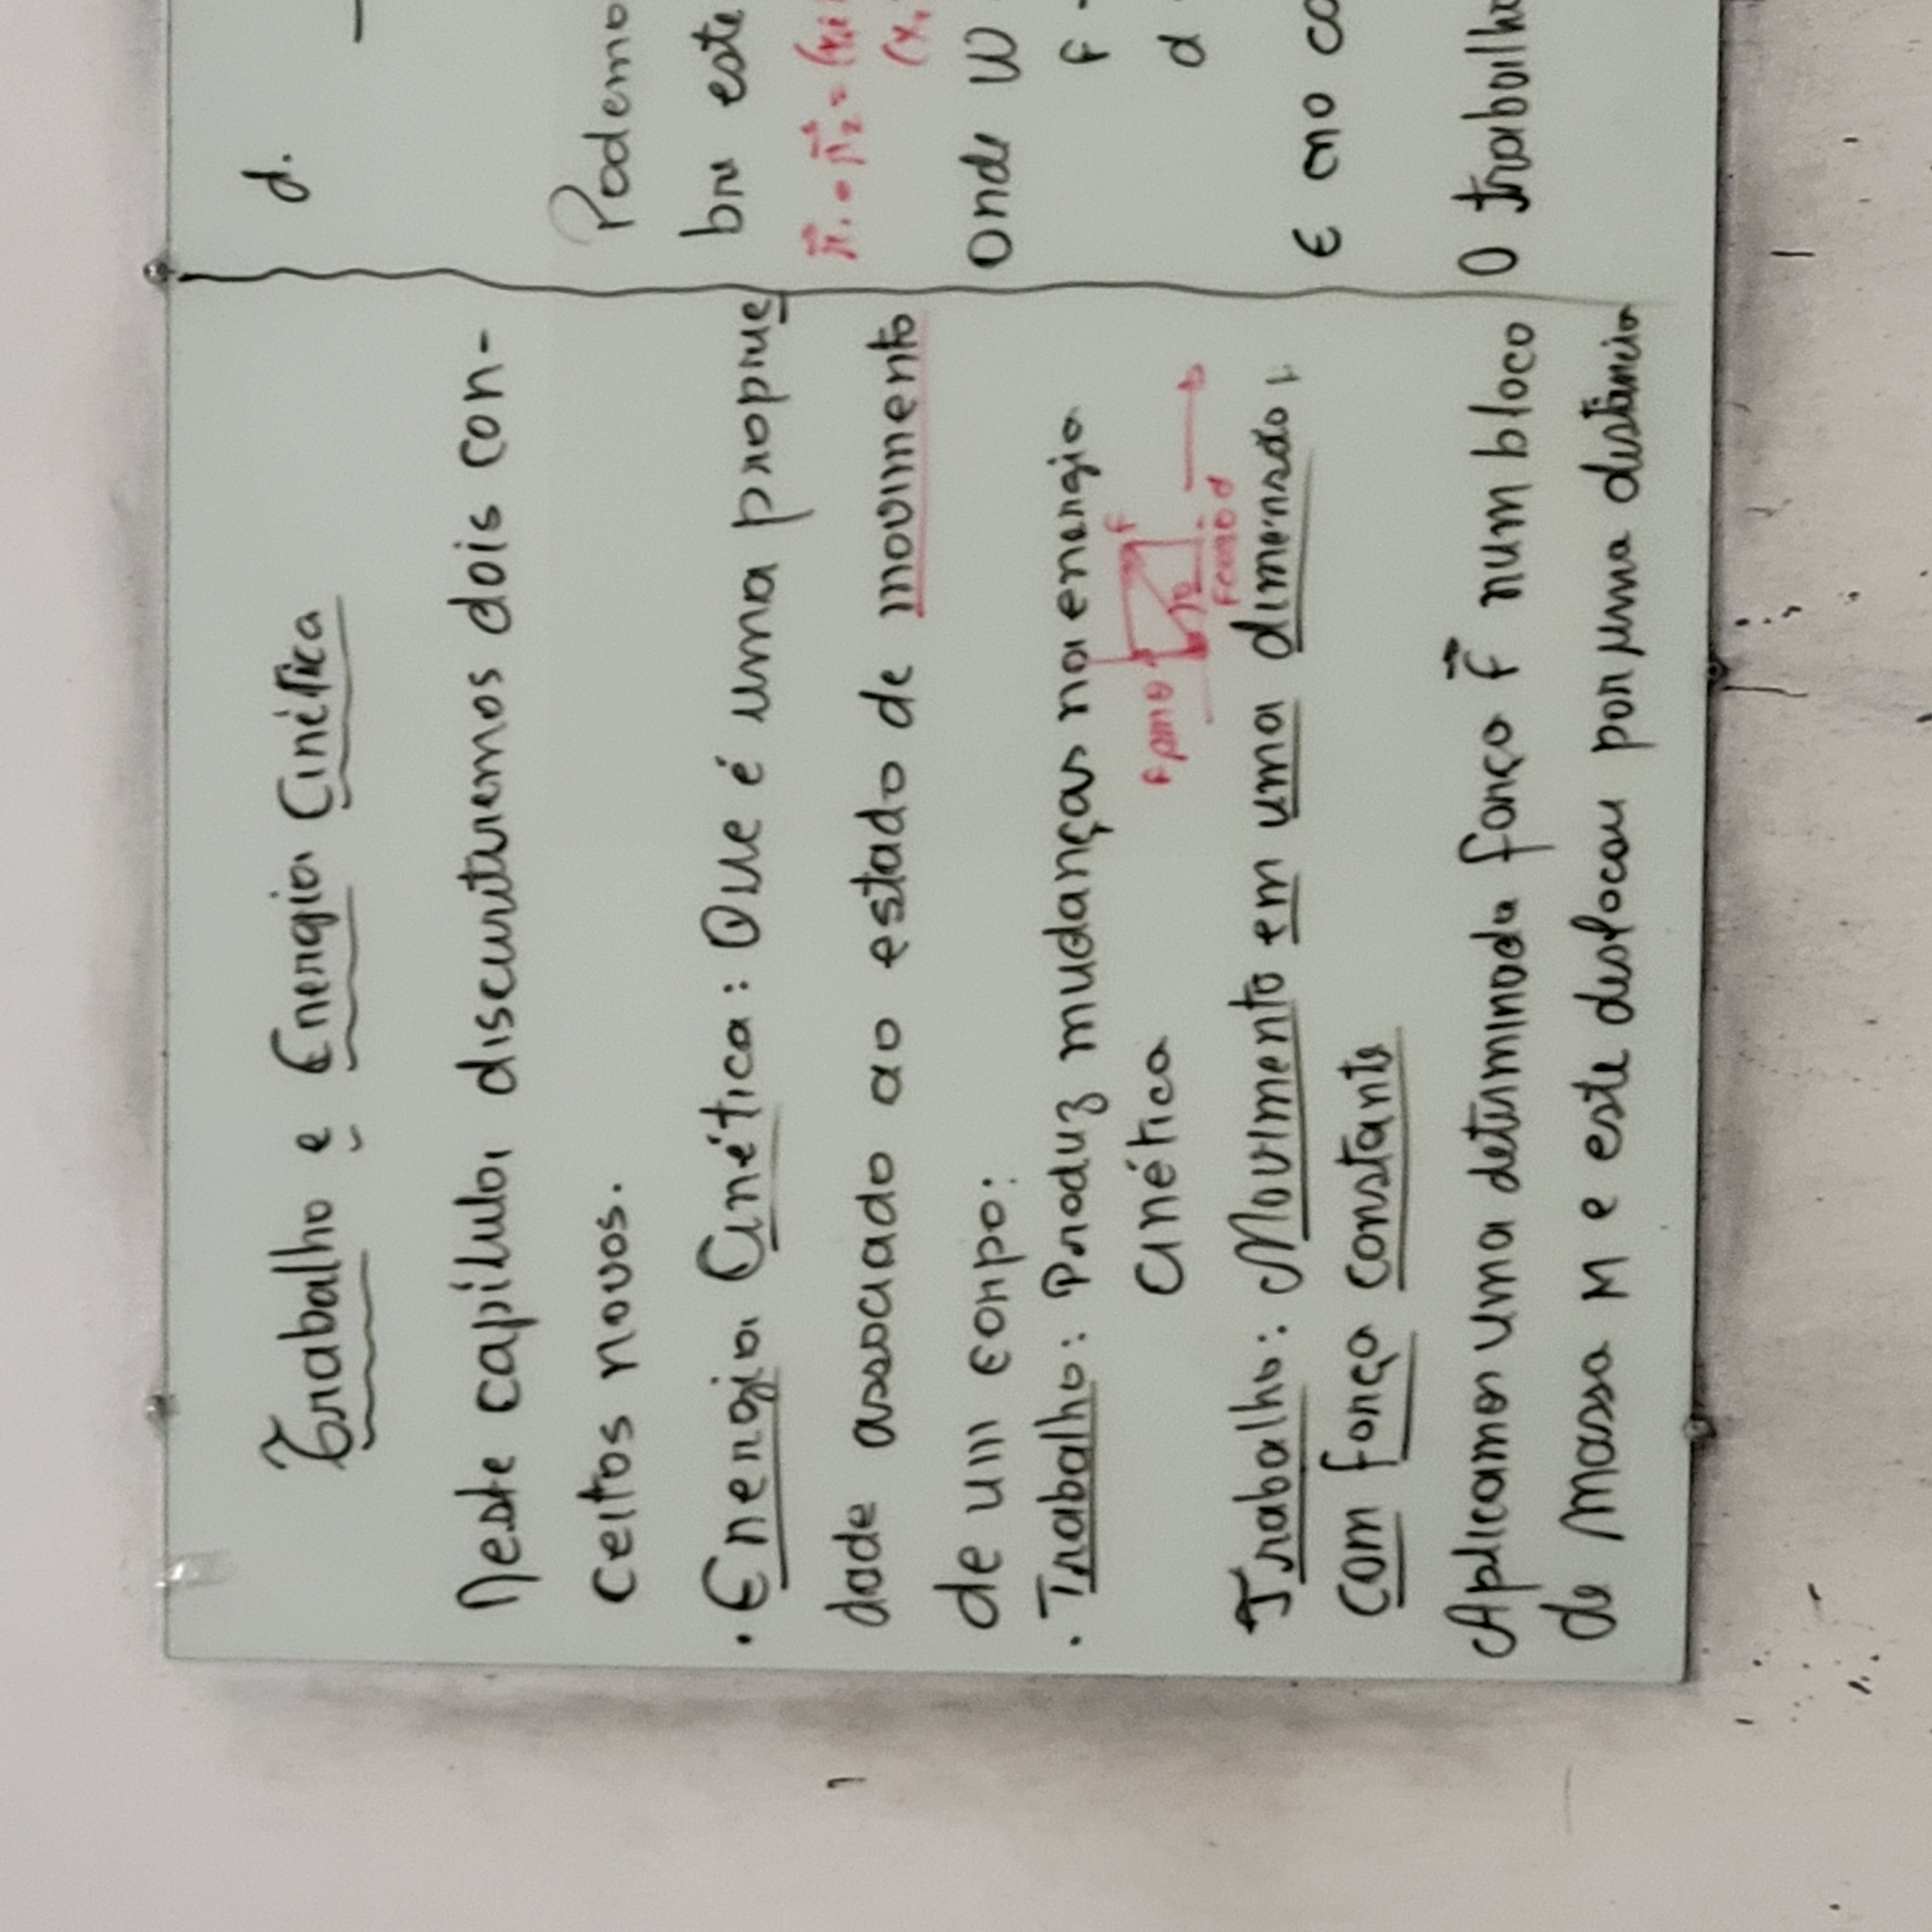 Trabalho e Energia Cinética
Neste capítulo, discutiremos dois con-
ceitos novos.
• Energia Cinética: Que é uma proprie
dade associado ao estado de movimento
de um corpo:
• Trabalho: Produz mudanças na energia
Cinética
F
Trabalho: Movimento em uma dimensão,
com força constante
Aplicamos uma determinada força F⃗ num bloco
de massa M e este deslocou por uma distância
d.
Podemo
bre este
Onde W
F -
d
E no ca
O trabalho